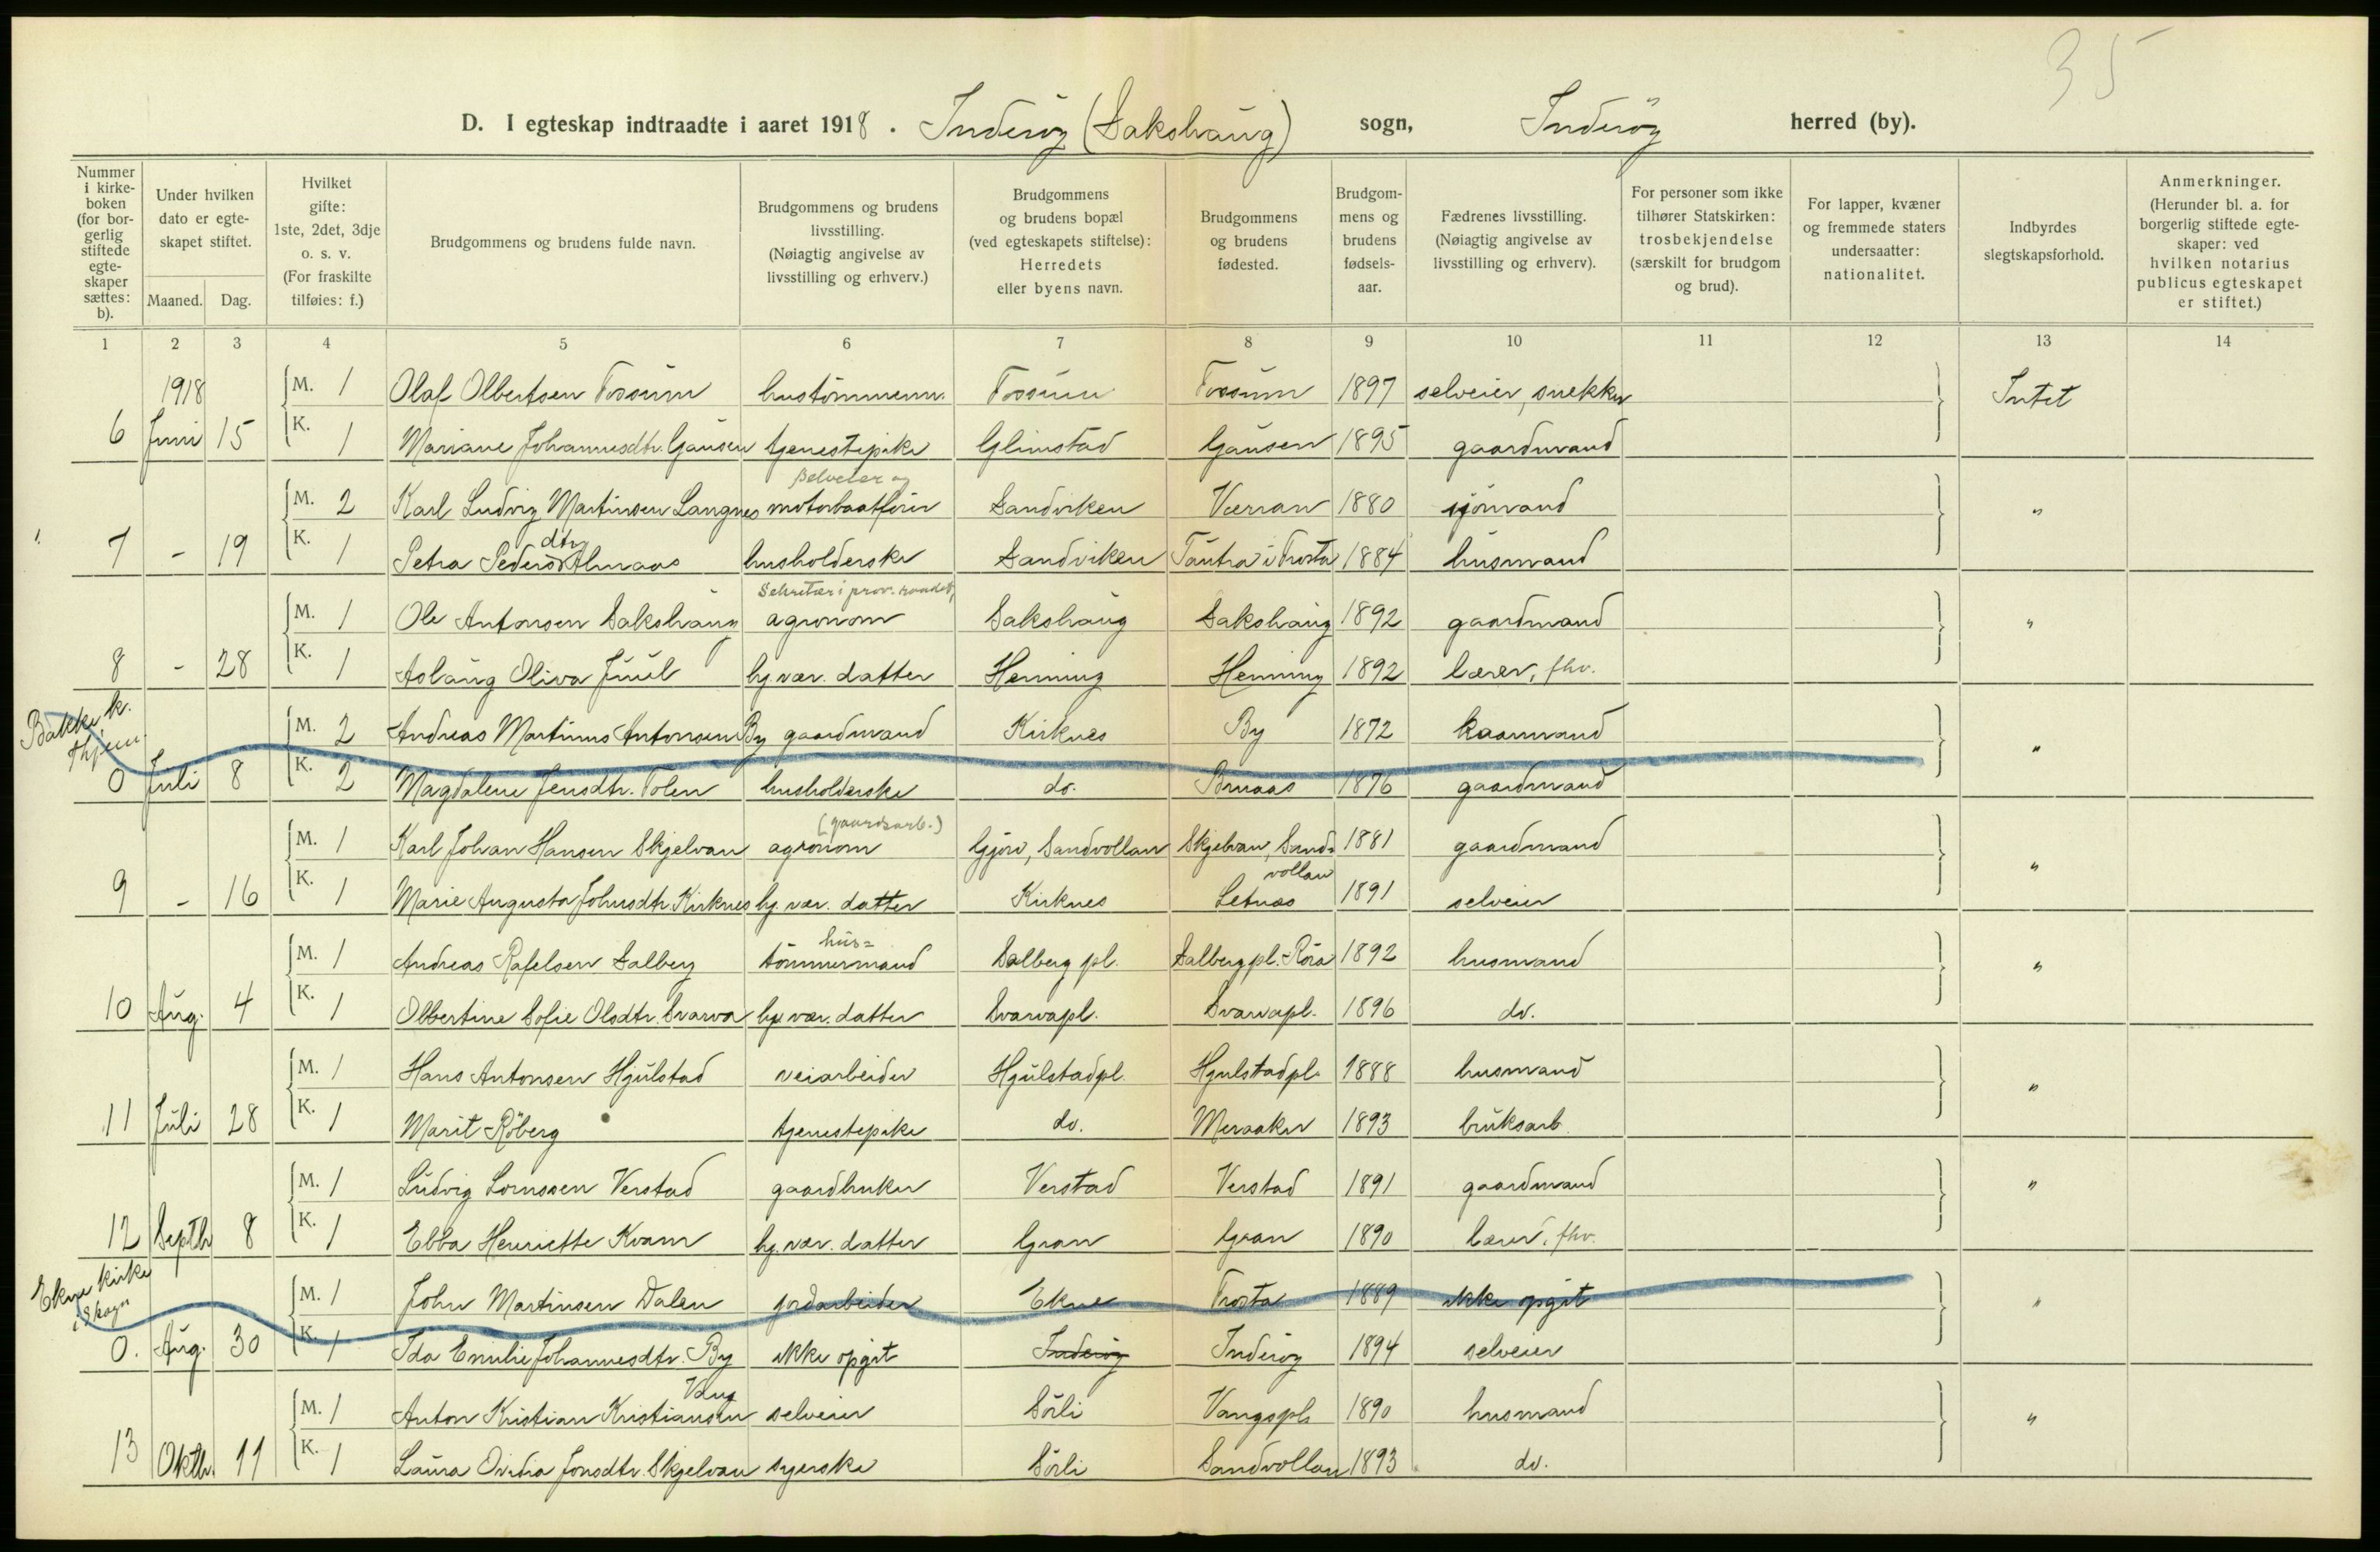 35
D. I egteskap indtraadte i aaret 1918. Inderöy (Sakshaug) sogn, Inderöy herred (by).
Nummer i kirke-boken (for bor-gerlig stiftede egte-skaper sættes: b).
Under hvilken dato er egte-skapet stiftet.
Maaned. Dag.
Hvilket gifte: 1ste, 2det, 3dje o. s. v. (For fraskilte tilføies: f.)
Brudgommens og brudens fulde navn.
Brudgommens og brudens livsstilling. (Nøiagtig angivelse av livsstilling og erhverv.)
Brudgommens og brudens bopæl (ved egteskapets stiftelse): Herredets eller byens navn.
Brudgommens og brudens fødested.
Brudgom-mens og brudens fødsels-aar.
Fædrenes livsstilling. (Nøiagtig angivelse av livsstilling og erhverv).
For personer som ikke tilhører Statskirken: trosbekjendelse (særskilt for brudgom og brud).
For lapper, kvæner og fremmede staters undersaatter: nationalitet.
Indbyrdes slegtskapsforhold.
Anmerkninger. (Herunder bl. a. for borgerlig stiftede egte-skaper: ved hvilken notarius publicus egteskapet er stiftet.)
1 2 3 4 5 6 7 8 9 10 11 12 13 14
1918 M. 1 Olaf Olbertsen Tossum hustömmerm. Tossum Tossum 1897 selveier, snekker Intet
6 Juni 15 K. 1 Mariane Johannesdtr. Gausen tjenestepike Glimstad Gausen 1895 gaardmand
selveier og
M. 2 Karl Ludvig Martinsen Langnes motorbaatförer Sandviken Værran 1880 sjömand "
dtr
7 - 19 K. 1 Petra Peders Almaas husholderske Sandviken Tautra i Frosta 1884 husmand
Sekretær i prov. raadet,
M. 1 Ole Antonsen Sakshaug agronom Sakshaug Sakshaug 1892 gaardmand "
8 - 28 K. 1 Aslaug Oliva Juul hj. vær. datter Henning Henning 1892 lærer, fhv.
Bakke k.
Thjem.
M. 2 Andreas Martinus Antonsen By gaardmand Kirknes By 1872 kaarmand "
0 Juli 8 K. 2 Magdalene Jensdtr. Tolen husholderske do. Bruaas 1876 gaardmand
(gaardsarb.)
M. 1 Karl Johan Hansen Skjelvan agronom Gjörv, Sandvollan Skjelvan, Sand= 1881 gaardmand "
vollan
9 - 16 K. 1 Marie Augusta Johnsdtr. Kirknes hj. vær. datter Kirknes Letnæs 1891 selveier
hus=
M. 1 Andreas Rafelsen Salberg tömmermand Salberg pl. Salberg pl. Röra 1892 husmand "
10 Aug. 4 K. 1 Olbertine Sofie Olsdtr. Svarva hj. vær. datter Svarvapl. Svarvapl. 1896 do.
M. 1 Hans Antonsen Hjulstad veiarbeider Hjulstadpl. Hjulstadpl. 1888 husmand "
11 Juli 28 K. 1 Marit Röberg tjenestepike do. Meraaker 1893 bruksarb.
M. 1 Ludvig Lornssen Verstad gaardbruker Verstad Verstad 1891 gaardmand "
12 Septbr 8 K. 1 Ebba Henriette Kvam hj. vær. datter Gran Gran 1890 lærer, fhv.
Ekne kirke
i Skogn
M. 1 John Martinsen Dalen jordarbeider Ekne Frosta 1889 ikke opgit "
0. Aug. 30 K. 1 Ida Emilie Johannesdtr. By ikke opgit Inderöy Inderöy 1894 selveier
Vang
M. 1 Anton Kristian Kristiansen selveier Sörli Vangspl. 1890 husmand "
13 Oktbr. 11 K. 1 Laura Ovidia Jonsdtr. Skjelvan syerske Sörli Sandvollan 1893 do.